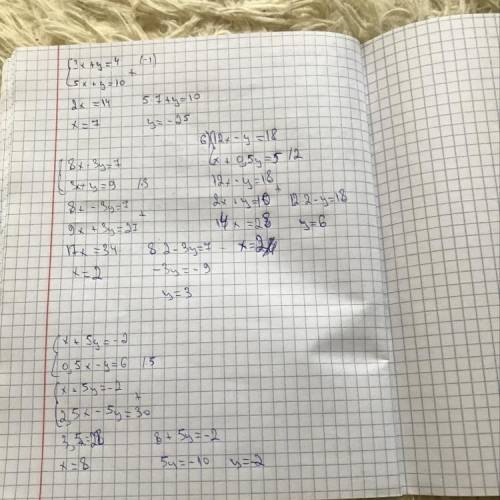 3x+y=4 (-1)
5x+y=10 +
2x=14 5·7+y=10
x=7 y=-25
8x-3y=7
3x+y=9 /·3
8x-3y=7
9x+3y=27 +
17x=34 8·2-3y=7
x=2 -3y=-9
y=3
б) 12x-y=18
x+0,5y=5 /·2
12x-y=18
2x+y=10 + 12·2-y=18
14x=28 y=6
x=2
x+5y=-2
0,5x-y=6 /·5
x+5y=-2
2,5x-5y=30 +
3,5x=28 8+5y=-2
x=8 5y=-10 y=-2